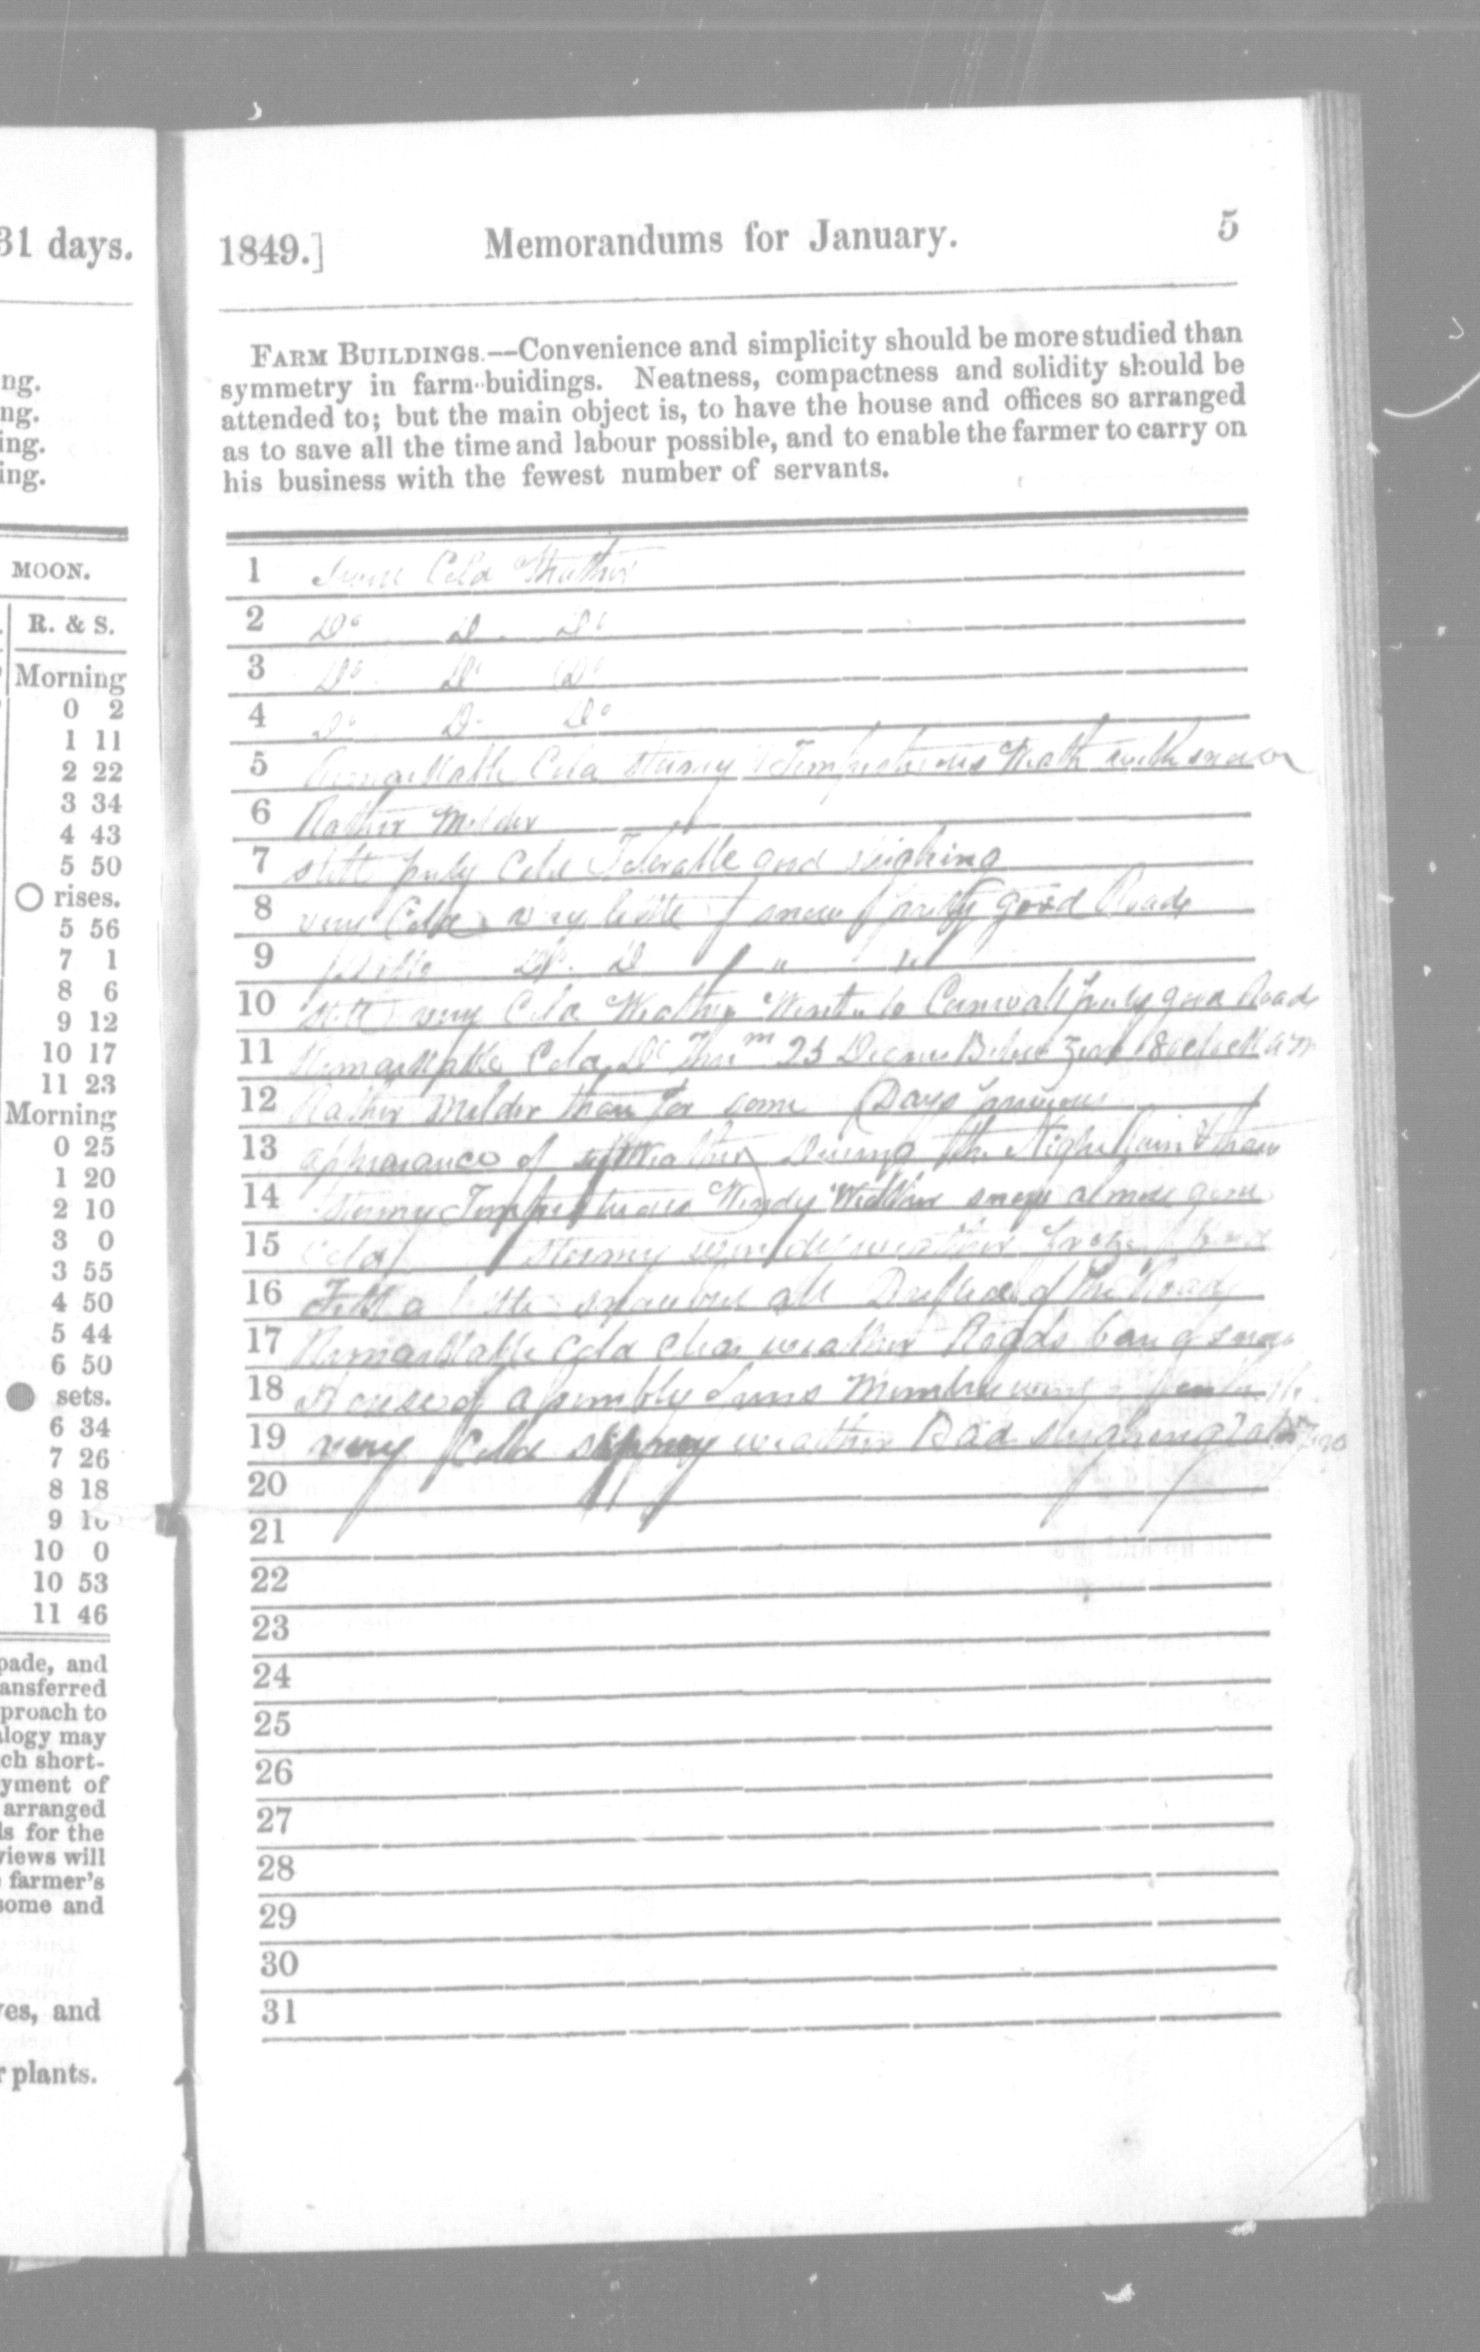 31 days.
ng.
ng.
ing.
ing.
MOON.
R. & S.
Morning
0 2
1 11
2 22
3 34
4 43
5 50
rises.
5 56
7 1
8 6
9 12
10 17
11 23
Morning
0 25
1 20
2 10
3 0
3 55
4 50
5 44
6 50
sets.
6 34
7 26
8 18
9
10 0
10 53
11 46
pade, and
ansferred
proach to
alogy may
ch short-
yment of
arranged
ls for the
views will
farmer's
some and
ves, and
r plants.
1849.] Memorandums for January. 5
FARM BUILDINGS.—Convenience and simplicity should be more studied than
symmetry in farm-buidings. Neatness, compactness and solidity should be
attended to; but the main object is, to have the house and offices so arranged
as to save all the time and labour possible, and to enable the farmer to carry on
his business with the fewest number of servants.
1 Cold Weather
2 Do D Do
3 Do Do Do
4 Do D Do
5 Remarkable Cold stormy & Tempestuous Weath with snow
6 Rather Milder
7 still prety Cold Tolerable good sleighing
8 very Cold very little snow pretty good Roads
9 Ditto Do D " "
10 still very Cold Weather Went to Cornwall prety good Road
11 Remarkable Cold Do Thrm 23 Degrees Below Zero 8 oclock am
12 Rather Milder than for some Days previous
13 appearance of Weather During the Night Rain & thaw
14 stormy Tempestuous Windy Weather snow almost gone
15 Cold stormy windy weather froze hard
16 Fell a little snow but all Drifted of the Roads
17 Remarkable Cold clear weather Roads bare of snow
18 House of Assembly
19 very Cold weather Bad sleighing
20
21
22
23
24
25
26
27
28
29
30
31